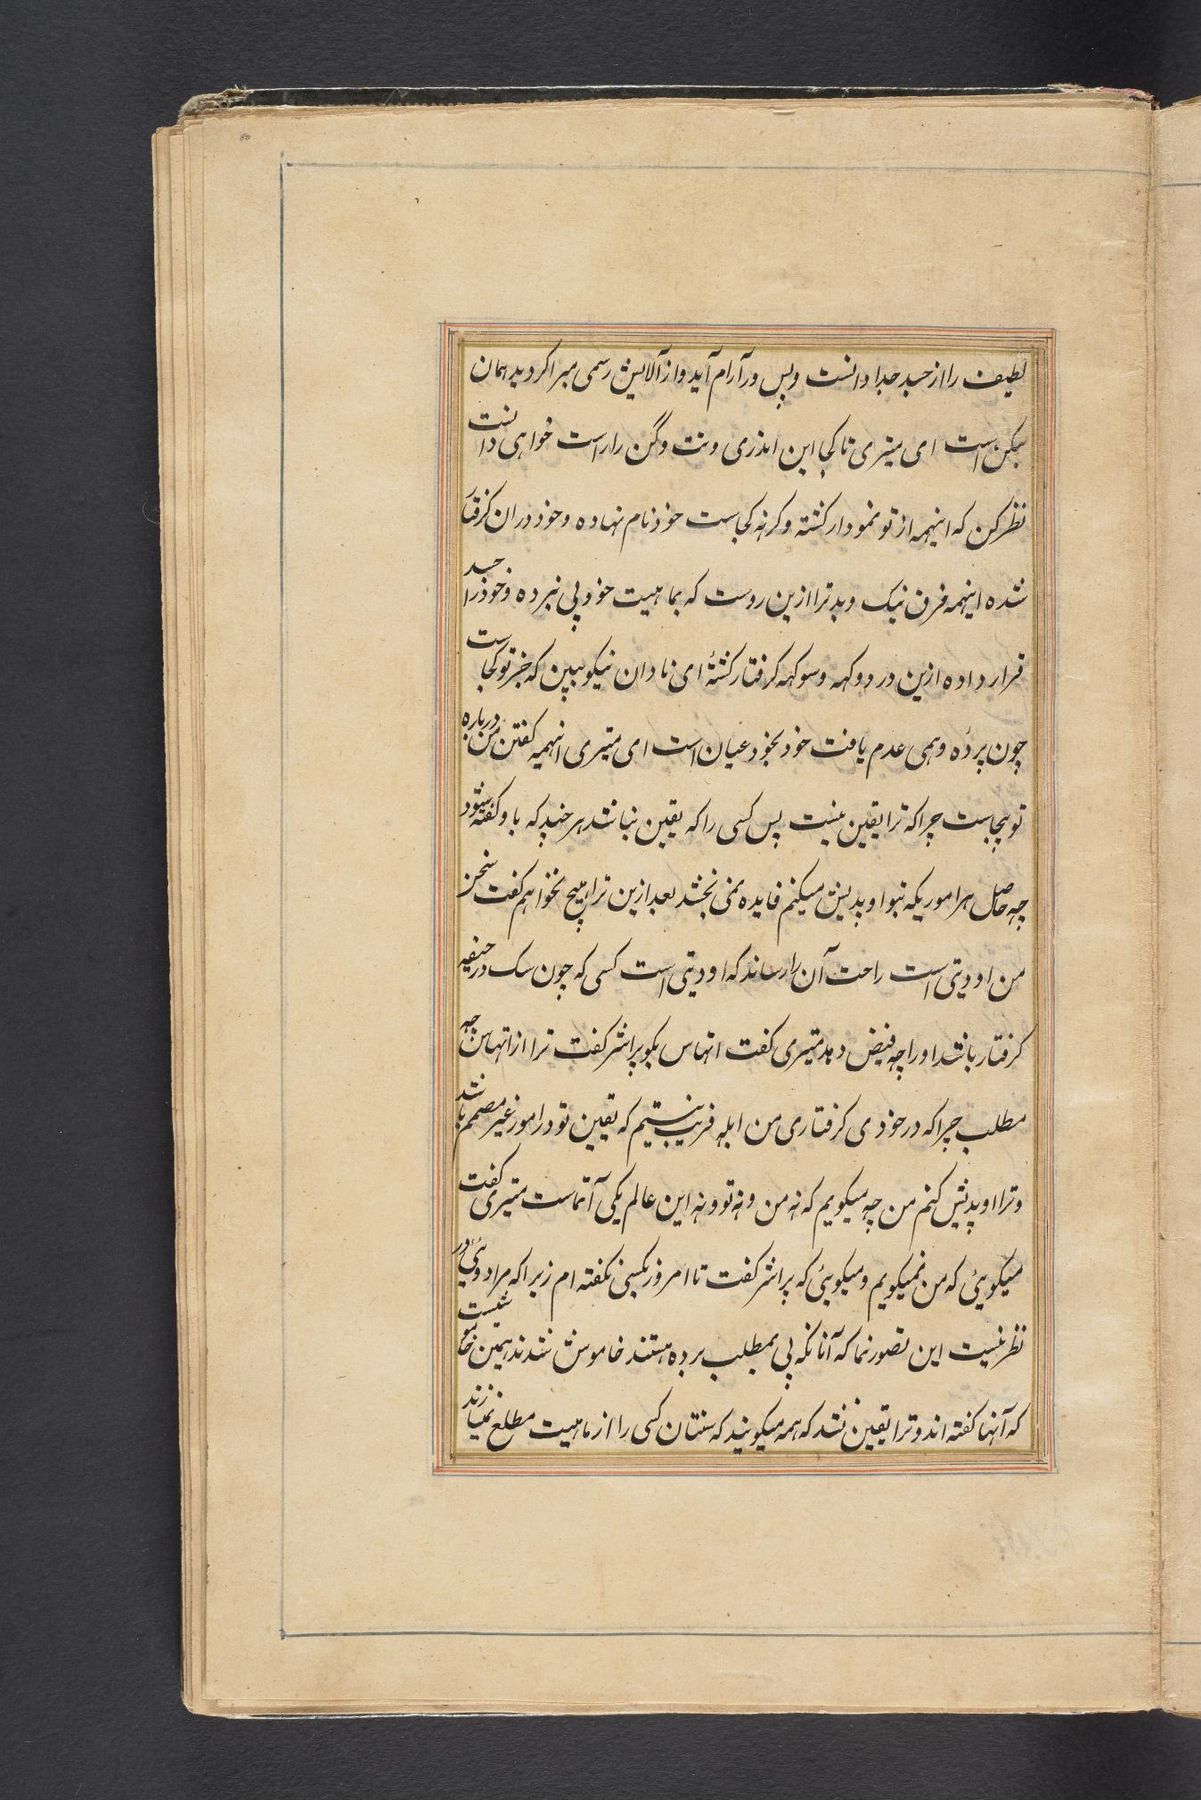 لطیف را از جسد جدا دانست و پس در آرام آید و از آلایش رسمی مبرا کردید همان
میکن است ای میتری تا کجا این اندری ونت وکن را راست خواهی دانست
نظر کن که اینهمه از تو نمودار کشته وکرنه کجاست خود نام نهاده و خود در ان کرفتار
شده اینهمه فرق نیک و بد ترا ازین روست که بماهیت خود پی نبرده و خود را جسد
قرار داده ازین در دوکهه وسوکهه کرفتار کشتهٔ ای نادان نیکو ببین که جز تو کجاست
چون پردهٔ وهمی عدم یافت خود بخود عیان است ای میتری اینهمه کفتن من درباره
تو بیجاست چرا که ترا یقین نیست پس کسی را که یقین نباشد هر چند که با و کفته شود
چه حاصل هر اموریکه بتو اوپدیش میکنم فایده نمی بخشد بعد ازین ترا هیچ نخواهم کفت سخن
من اودیتی است راحت آن را رساند که اودیتی است کسی که چون سک در جیفه
کرفتار باشد او را چه فیض دهد میتری کفت اتهاس بکو پراشر کفت ترا از اتهاس چه
مطلب چرا که در خودی کرفتاری من ابله فریب نیستم که یقین تو در امور غیر مصمم باشد
و ترا اوپدیش کنم من چه میکویم که نه من و نه تو و نه این عالم یکی آتماست میتری کفت
میکویئ که من نمیکویم و میکویئ که پراشر کفت تا امروز بکسی نکفته ام زیرا که مراد دوئی در
نظر نیست این تصور نما که آنانکه پی بمطلب برده هستند خاموش شدند همین خاموشیست
که آنها کفته اند و ترا یقین نشد که همه میکویند که سنتان کسی را از ماهیت مطلع نمیسازند